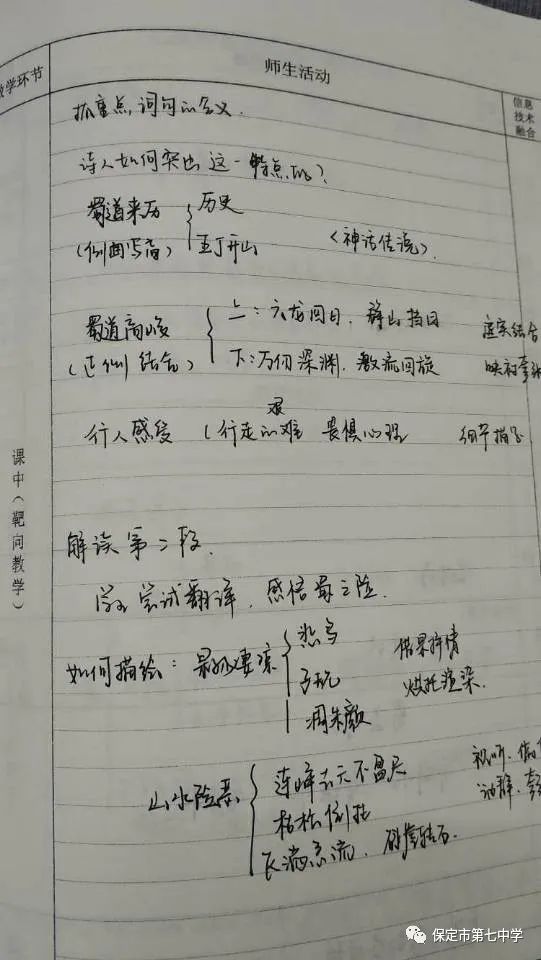 教学环节
师生活动
信息
技术
融合
课中（靶向教学）
抓重点词句的含义.
诗人如何突出这一特点的？
蜀道来历 历史
（侧面写高） 五丁开山 <神话传说>.
蜀道高峻 上：六龙回日，群山挡日 虚实结合
（正侧结合） 下：万仞深渊，激流回旋 映衬夸张
艰
行人感受 行走的难 畏惧心理 细节描写
解读第二段.
尝试翻译，感悟蜀之险.
如何描绘：景物凄凉 悲鸟 借景抒情
子规 烘托渲染.
凋朱颜
山水险恶 连峰去天不盈尺 视听，
枯松倒挂 动静，
飞湍急流，砯崖转石.
保定市第七中学